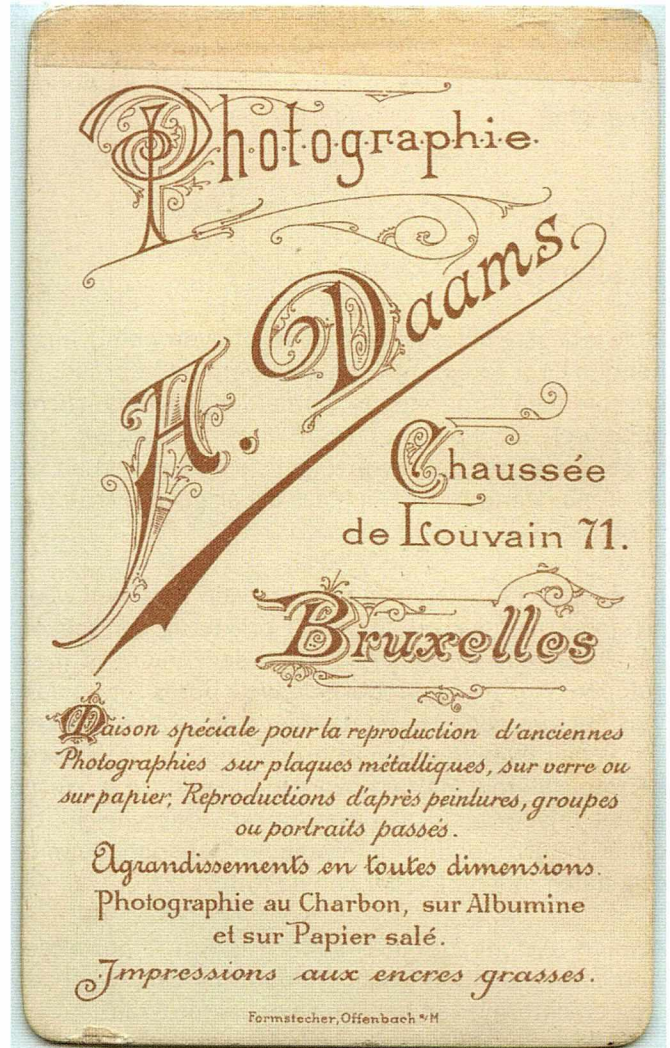 Photographie
A. Daams
Chaussée
de Louvain 71.
Bruxelles
Maison spéciale pour la reproduction d'anciennes
Photographies sur plaques métalliques, sur verre ou
sur papier, Reproductions d'après peintures, groupes
ou portraits passés.
Agrandissements en toutes dimensions.
Photographie au Charbon, sur Albumine
et sur Papier salé.
Impressions aux encres grasses.
Formstecher, Offenbach a/M